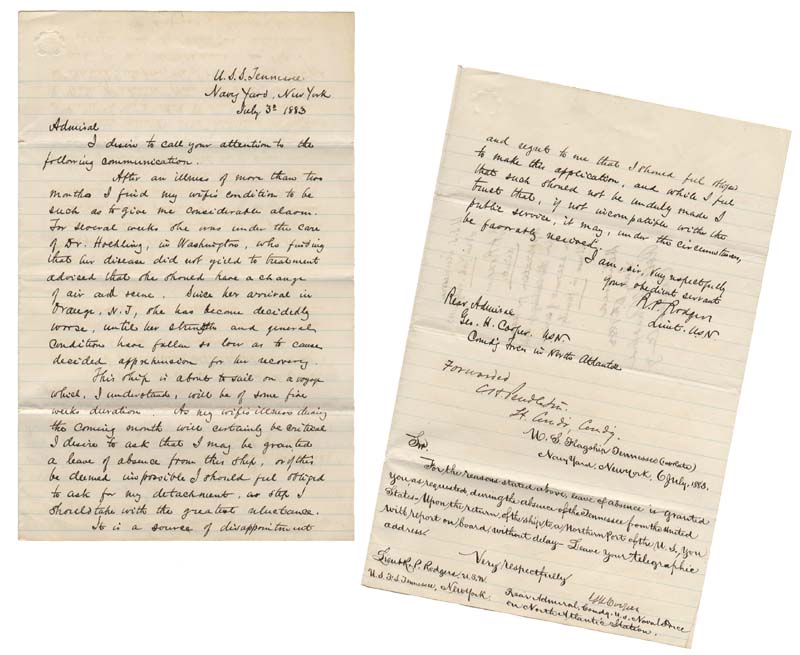 U.S.S. Tennessee
Navy Yard, New York
July 3d 1883
Admiral
I desire to call your attention to the
following communication.
After an illness of more than two
months I find my wife's condition to be
such as to give me considerable alarm.
For several weeks she was under the care
of Dr. Hoehling, in Washington, who finding
that her disease did not yield to treatment
advised that she should have a change
of air and scene. Since her arrival in
Orange, N.J, she has become decidedly
worse, until her strength and general
condition have fallen so low as to cause
decided apprehension for her recovery.
This ship is about to sail on a voyage
which, I understand, will be of some five
weeks duration. As my wife's illness during
the coming month will certainly be critical
I desire to ask that I may be granted
a leave of absence from this ship, or if this
be deemed impossible I should feel obliged
to ask for my detachment, a step I
should take with the greatest reluctance.
It is a source of disappointment
and regret to me that I should feel obliged
to make this application, and while I feel
that such should not be unduly made I
trust that, if not incompatible with the
public service, it may, under the circumstances,
be favorably viewed.
I am, sir, very respectfully
your obedient servant
R.P. Rodgers
Lieut. USN
Rear Admiral
Geo. H. Cooper. USN
Comd'g Force in North Atlantic
Forwarded
Lt. Comdr, Comdg.
U.S. Flagship Tennessee (2nd rate)
Navy Yard, New York, 6 July, 1883.
Sir.
For the reasons stated above, leave of absence is granted
you, as requested, during the absence of the Tennessee from the United
States. Upon the return of the ship to a Northern Port of the U.S, you
will report on board, without delay. Leave your telegraphic
address.
Very respectfully
Lieut. R.P. Rodgers, U.S.N.
U.S.F.S. Tennessee, New York.
G H Cooper
Rear Admiral, Comdg. U.S. Naval Force
on North Atlantic Station.